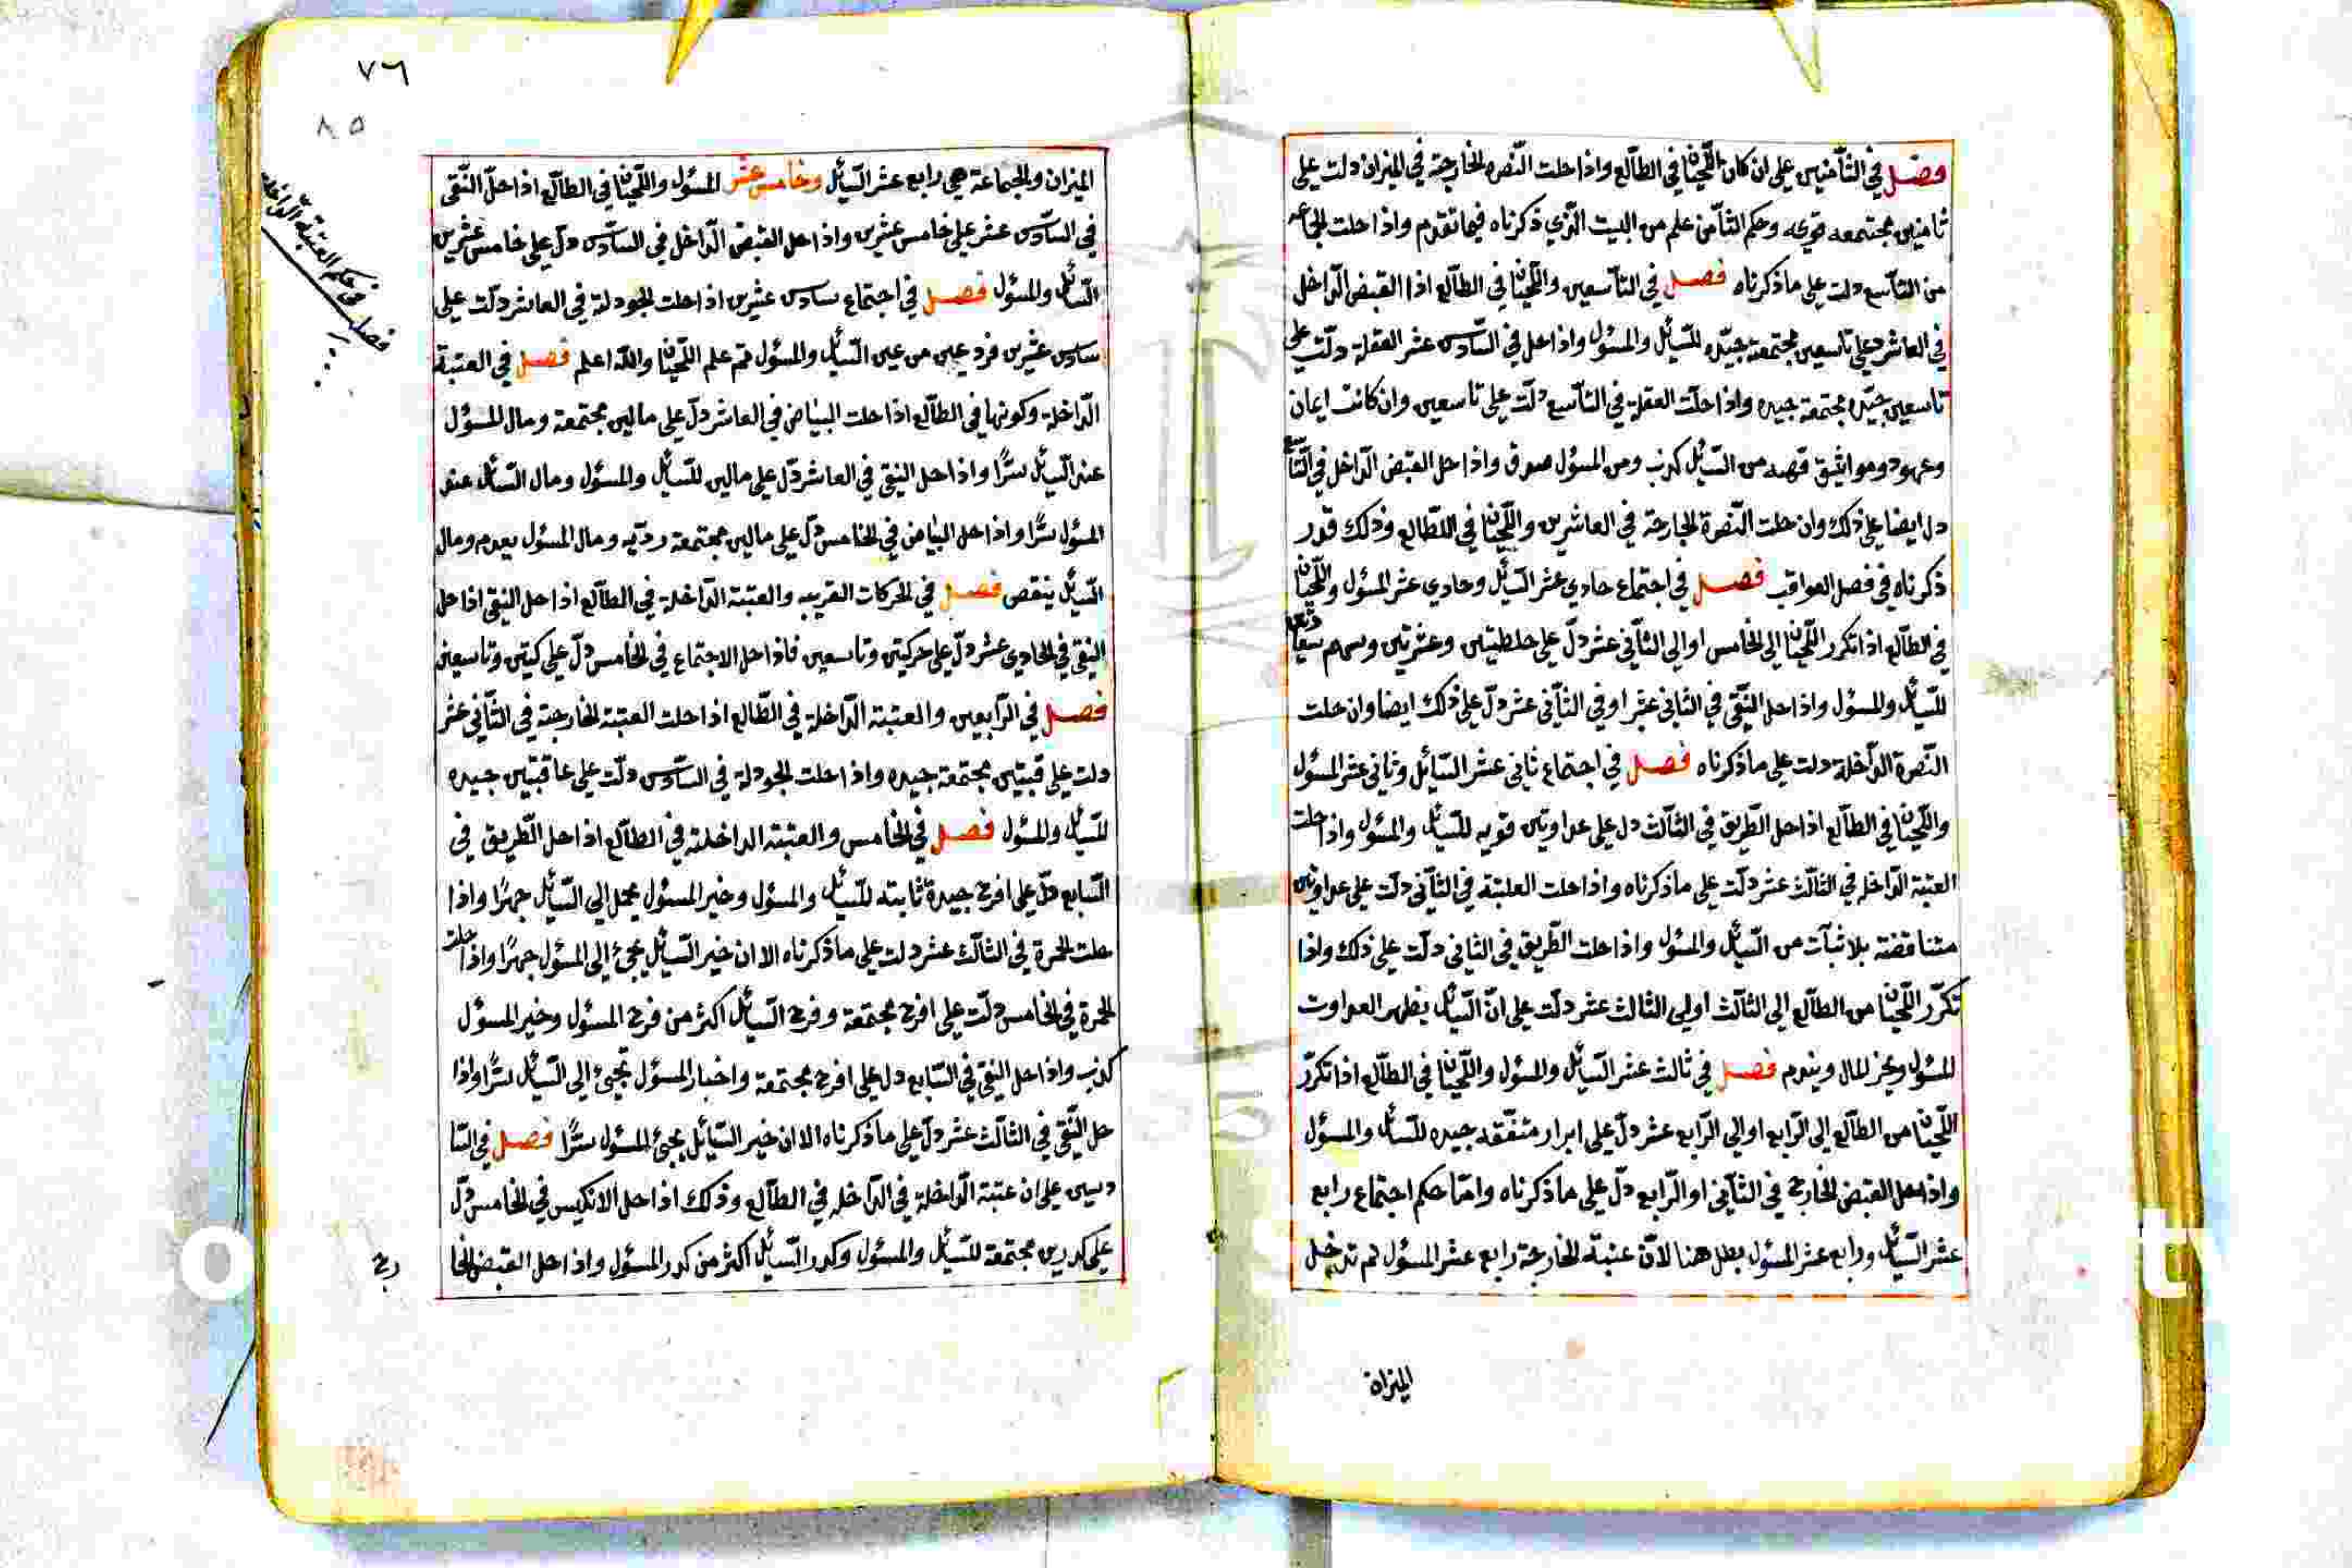 فصل في الثامنين على ان كان اللحيان في الطالع واذا حلت النصره الخارجة في الميزان دلت على
ثامنين مجتمعه قويه وحكم الثامن علم من البيت الذي ذكرناه فيما تقدم واذا حلت الجماعه
من التاسع دلت على ما ذكرناه فصل في التاسعين واللحيان في الطالع اذا القبض الداخل
في العاشر دل على تاسعين مجتمعة جيده للسائل والمسؤل واذا حل في السادس عشر العقلة دلت على
تاسعين جيده مجتمعة جيده واذا حلت العقلة في التاسع دلت على تاسعين وان كانت ايمان
وعهود ومواثيق فهيه من السائل كذب ومن المسؤل صدق واذا حل القبض الداخل في التاسع
دل ايضا على ذلك وان حلت النصرة الخارجة في العاشرين واللحيان في الطالع وذلك قدر
ذكرناه في فصل العواقب فصل في اجتماع حادي عشر السائل وحادي عشر المسؤل واللحيان
في الطالع اذا تكرر اللحيان الى الخامس او الى الثاني عشر دل على خلطتين وعشرتين
للسائل والمسؤل واذا حل النقي في الثاني عشر او في الثاني عشر دل على ذلك ايضا وان حلت
النصرة الداخلة دلت على ما ذكرناه فصل في اجتماع ثاني عشر السائل وثاني عشر المسؤل
واللحيان في الطالع اذا حل الطريق في الثالث دل على عداوتين قويه للسائل والمسؤل واذا حلت
العتبة الداخلة في الثالث عشر دلت على ما ذكرناه واذا حلت العتبة في الثاني دلت على عداوتين
متناقضة بلا ثبات من السائل والمسؤل واذا حلت الطريق في الثاني دلت على ذلك واذا
تكرر اللحيان من الطالع الى الثالث او الى الثالث عشر دلت على ان السائل يظهر العداوت
للمسؤل وبخز المال ويندم فصل في ثالث عشر السائل والمسؤل واللحيان في الطالع اذا تكرر
اللحيان من الطالع الى الرابع او الى الرابع عشر دل على ابرار متفقه جيده للسائل والمسؤل
واذا حل القبض الخارج في الثاني او الرابع دل على ما ذكرناه واما حكم اجتماع رابع
عشر السائل ورابع عشر المسؤل بطل هنا لان عتبة الخارجة رابع عشر المسؤل لم تدخل
الميزان
٧٦
٨٥
الميزان والجماعة هي رابع عشر السائل وخامس عشر المسؤل واللحيان في الطالع اذا حل النقي
في السادس عشر على خامس عشرين واذا حل القبض الداخل في السادس دل على خامس عشرين
السائل والمسؤل فصل في اجتماع سادس عشرين اذا حلت الجودلة في العاشر دلت على
سادس عشرين فرد عين من عين السائل والمسؤل تم علم اللحيان والله اعلم فصل في العتبة
الداخلة وكونها في الطالع اذا حلت البياض في العاشر دل على مالين مجتمعة ومال المسؤل
عند السائل سرًا واذا حل النقي في العاشر دل على مالين للسائل والمسؤل ومال السائل عند
المسؤل سرًا واذا حل البياض في الخامس دل على مالين مجتمعة رديه ومال المسؤل يعدم ومال
السائل ينقص فصل في الحركات القريبه والعتبة الداخلة في الطالع اذا حل النقي اذا حل
النقي في الحادي عشر دل على حركتين وتاسعين فاذا حل الاجتماع في الخامس دل على كتين وتاسعين
فصل في الرابعين والعتبة الداخلة في الطالع اذا حلت العتبة الخارجة في الثاني عشر
دلت على قبتين مجتمعة جيده واذا حلت الجودلة في السادس دلت على عاقبتين جيده
للسائل والمسؤل فصل في الخامس والعتبة الداخلة في الطالع اذا حل الطريق في
السابع دل على افرح جيدة ثابته للسائل والمسؤل وخير المسؤل يحمل الى السائل جهرًا واذا
حلت الحمرة في الثالث عشر دلت على ما ذكرناه الا ان خير السائل يجئ الى المسؤل جهرًا واذا حلت
الحمرة في الخامس دلت على افرح مجتمعة وفرح السائل اكثر من فرح المسؤل وخير المسؤل
كذب واذا حل النقي في السابع دل على افرح مجتمعة واخبار المسؤل تجئ الى السائل سرًا واذا
حل النقي في الثالث عشر دل على ما ذكرناه الا ان خير السائل يجئ المسؤل سرًا فصل في السا
دسين على ان عتبة الداخلة في الداخله في الطالع وذلك اذا حل الانكيس في الخامس دل
على كدرين مجتمعة للسائل والمسؤل وكدر السائل اكثر من كدر المسؤل واذا حل القبض الخا
رج
فصل في حكم العتبة الداخلة